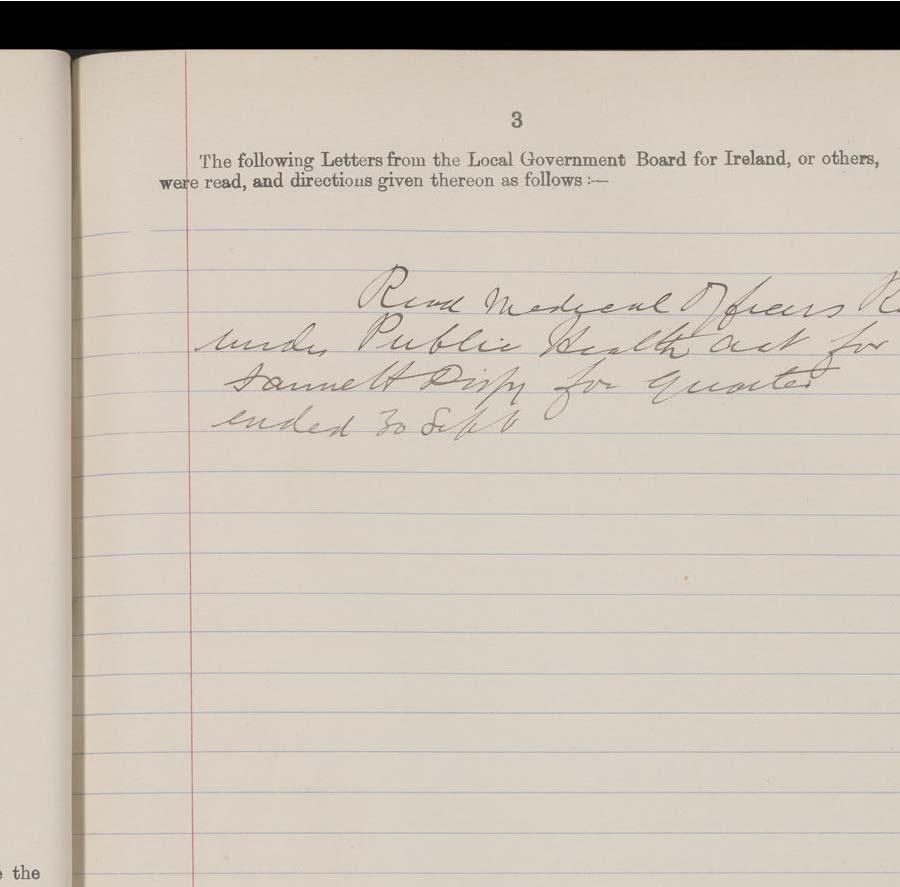 3
The following Letters from the Local Government Board for Ireland, or others,
were read, and directions given thereon as follows :—
Read Medical Officers
under Public Health Act for
Dispy for Quarter
ended 30 Sept
the